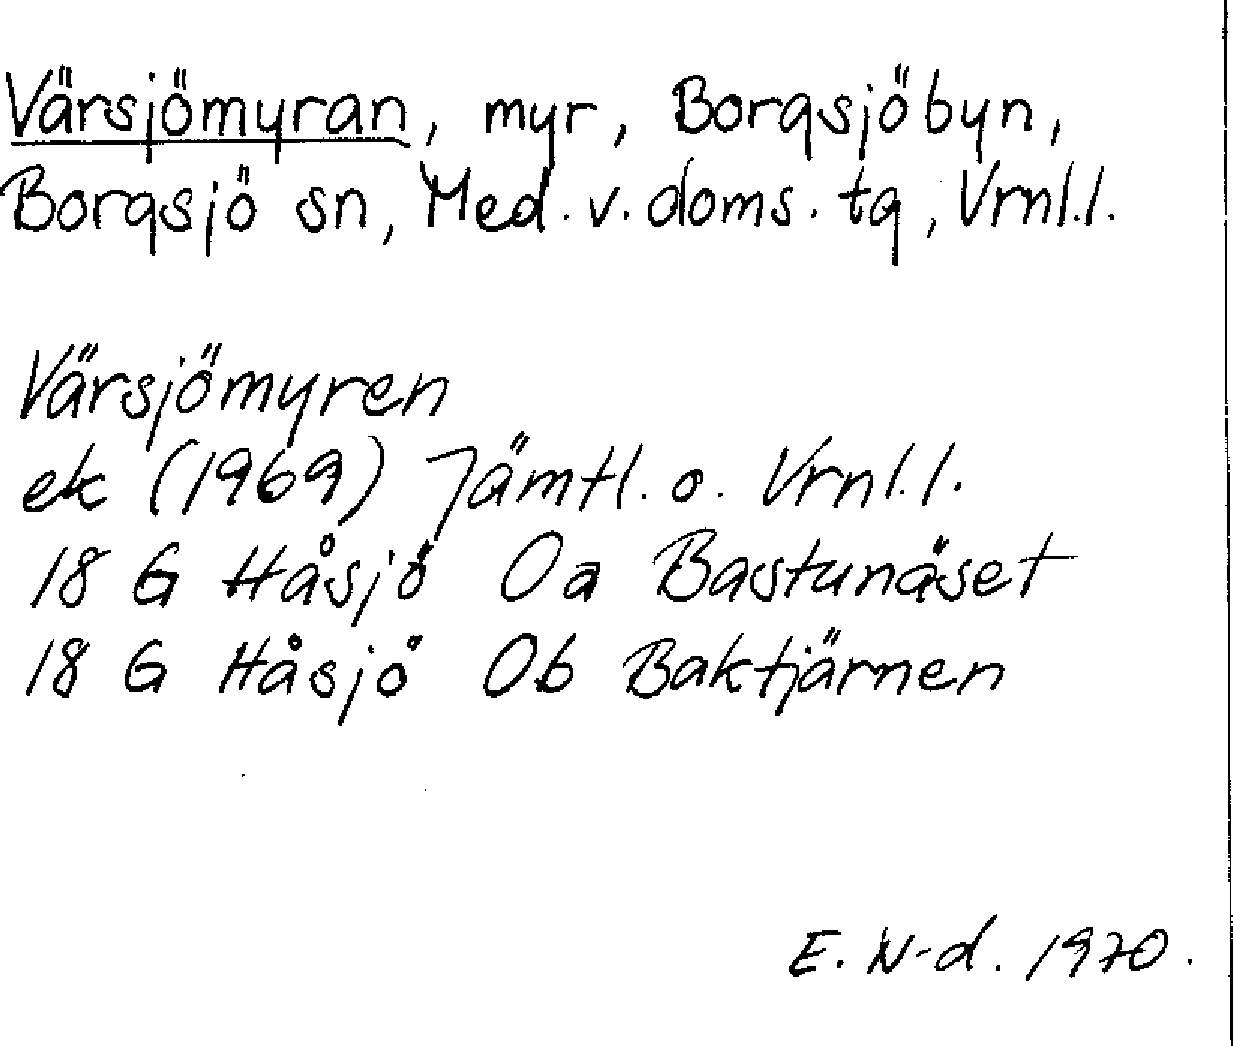 Värsjömyran, myr, Borgsjöbyn,
Borgsjö sn, Med. v. doms. tg, Vrnl.l.
Värsjömyren
ek (1969) Jämtl. o. Vrnl.l.
18 G Håsjö 0a Bastunäset
18 G Håsjö 0b Baktjärnen
E. N-d. 1970.